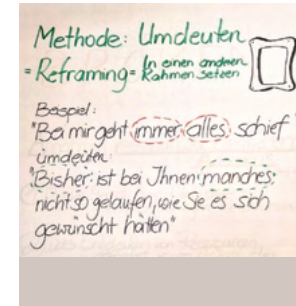 Methode: Umdeuten
= Reframing = In einen anderen
Rahmen setzen
Beispiel:
"Bei mir geht immer alles schief"
umdeuten:
"Bisher ist bei Ihnen manches
nicht so gelaufen, wie Sie es sich
gewünscht hätten"